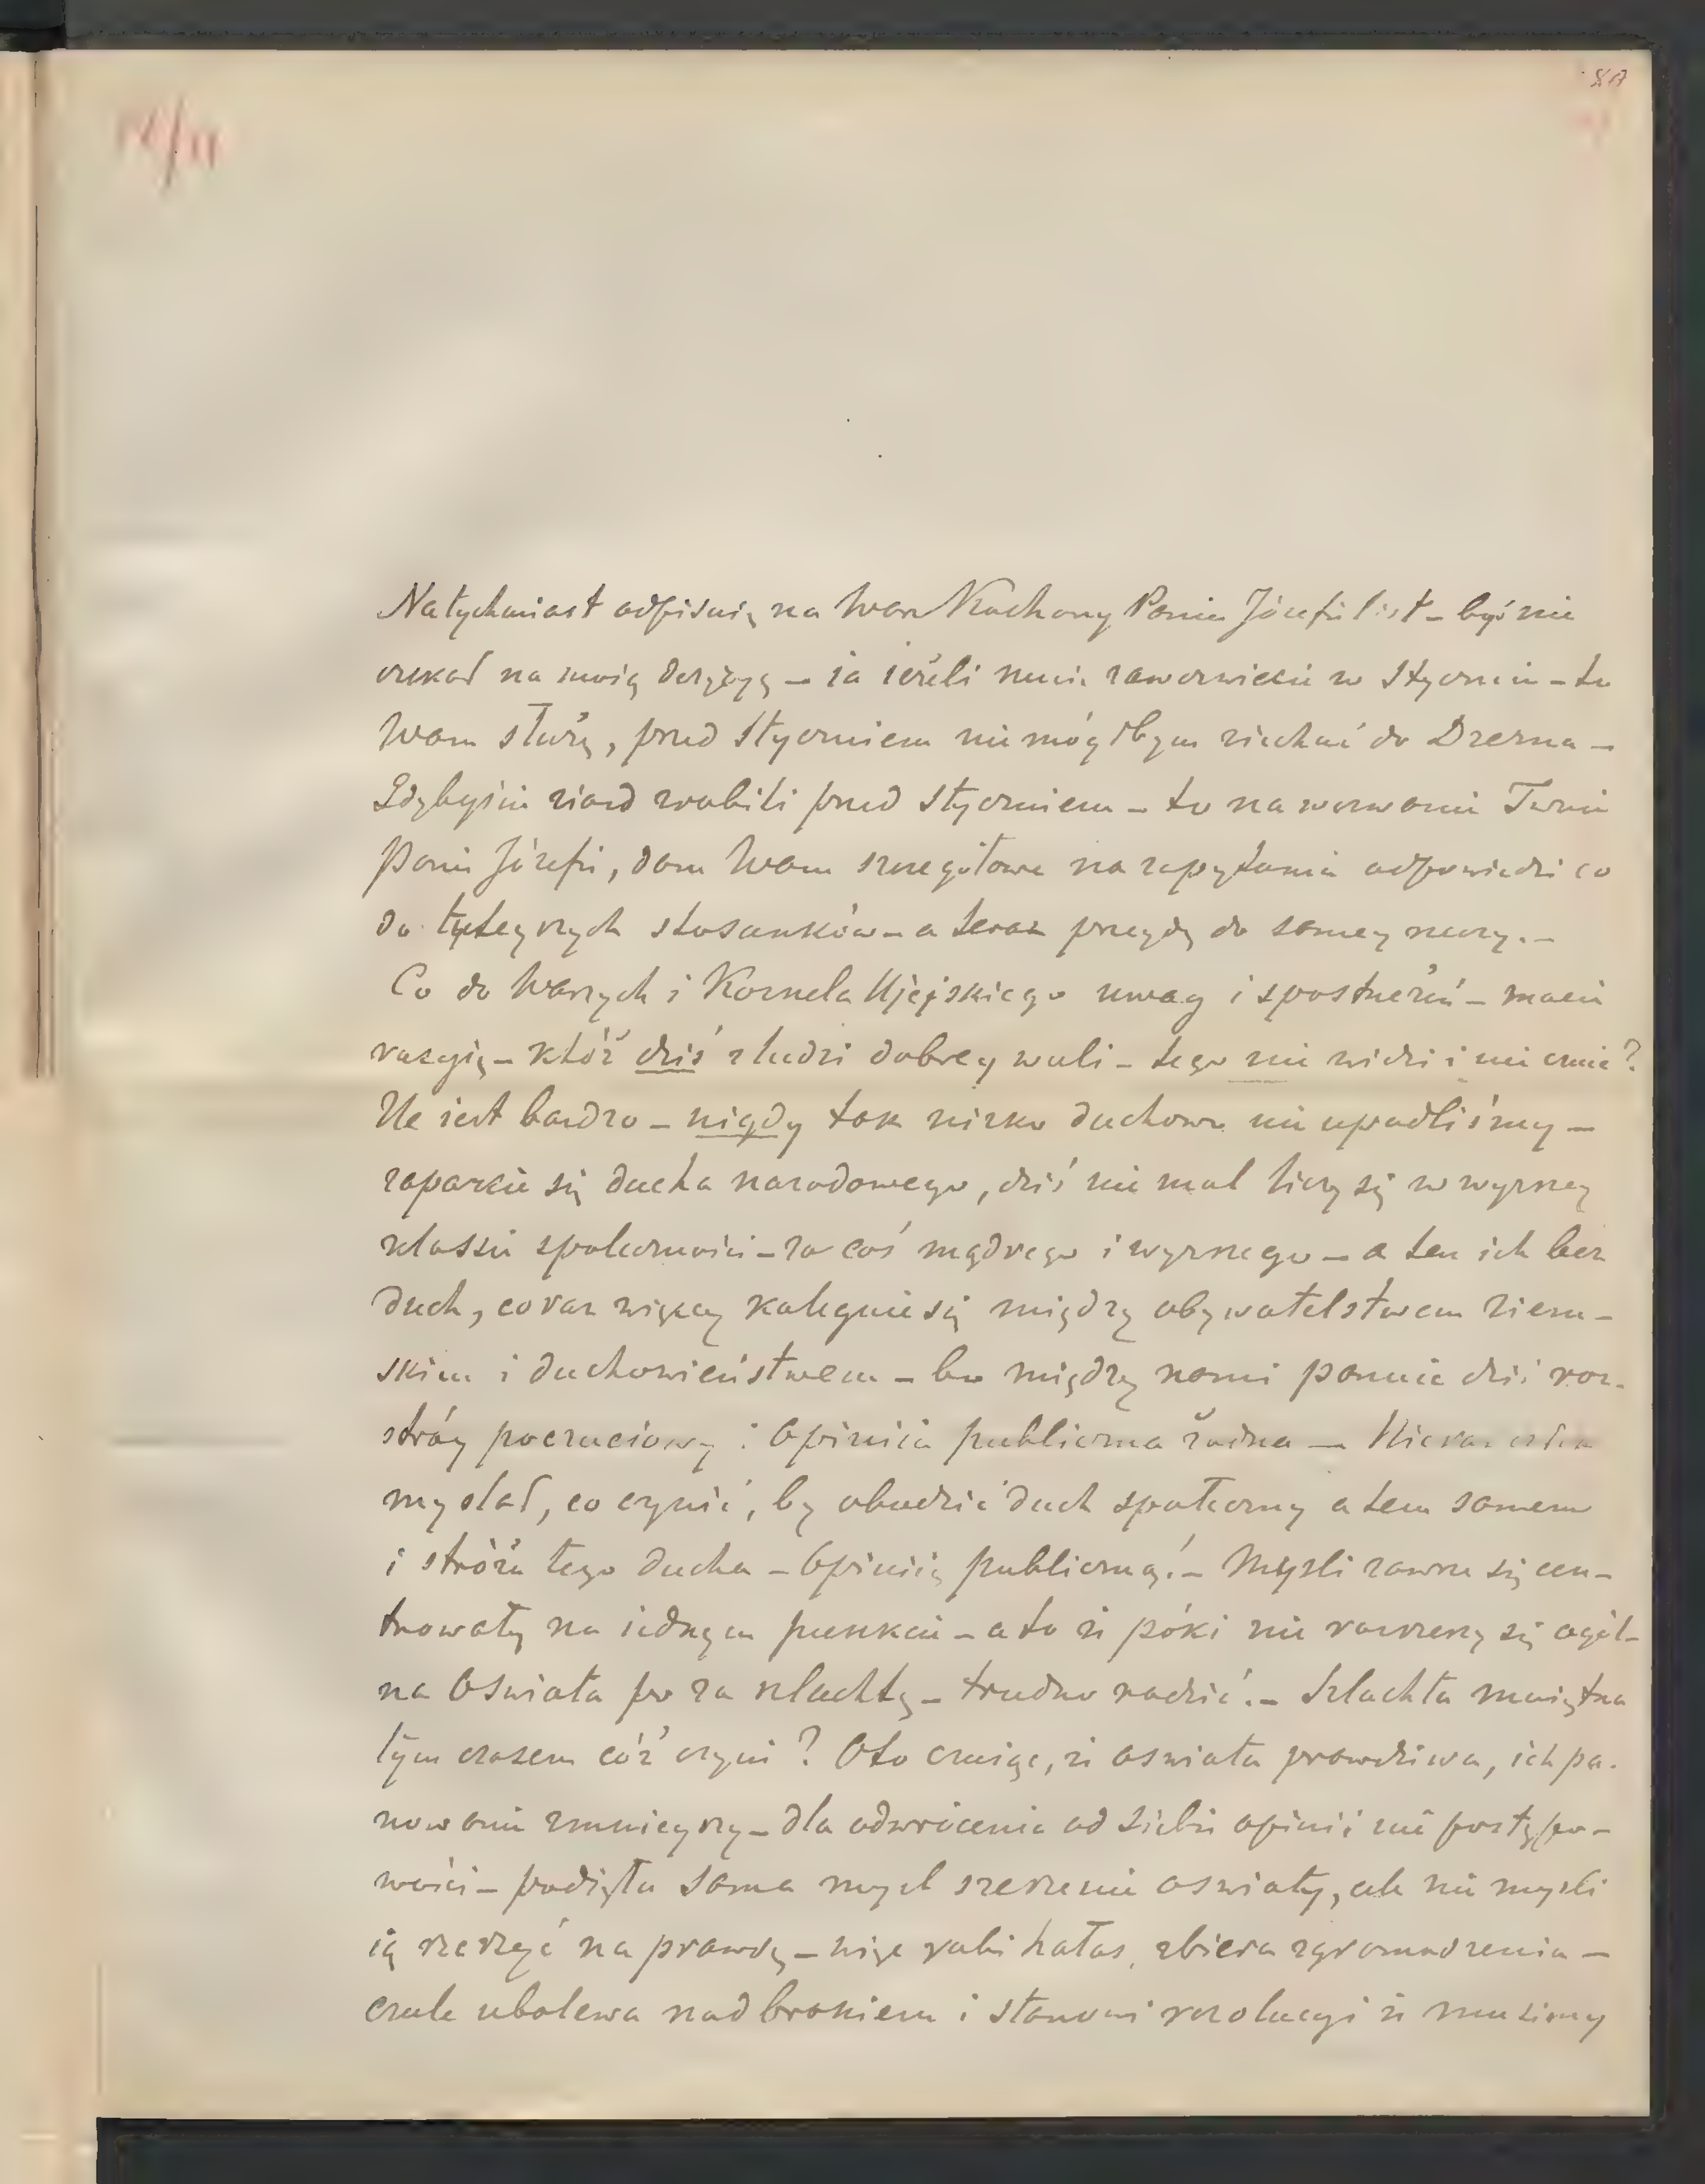 12/11
Natychmiast odpisuię na Wasz Kochany Panie Józefie list – byś nie
czekał na moią decyzyą – ia ieżeli mnie zawezwiecie w Styczniu – to
Wam służę, przed Styczniem nie mógłbym ziechać do Drezna –
Gdybyście ziazd zrobili przed styczniem – to na wezwanie Twoie
Panie Józefie, dam Wam szczegółowe na zapytania odpowiedzi co
do tuteyszych stosunków – a teraz przeydę do samey rzeczy. –
Co do Waszych i Kornela Ujejskiego uwag i spostrzeżeń – macie
racyią – któż dziś z ludzi dobrey woli – tego nie widzi i nie czuie?
Źle iest bardzo – nigdy tak nizko duchowo nie upadliśmy –
zaparcie się ducha narodowego, dziś nie mal liczy się w wyższey
klassie społeczności – za coś mądrego i wyższego – a ten ich bez
duch, coraz więcey zalęgnie się między obywatelstwem ziem-
skim i duchowieństwem – bo między nami panuie dziś roz-
stróy poczuciowy i Opiniia publiczna żadna — Nieraz
myslał, co czynić, by obudzić duch społeczny a tem samem
i stróża tego ducha – Opiniią publiczną! – Mysli zawsze się cen-
trowały na iednym punkcie – a to że póki nie rozszerzy się ogól-
na Oświata po za szlachtę – trudno radzić. – Szlachta maiętna
tym czasem cóż czyni? Oto czuiąc, że oswiata prawdziwa, ich pa-
nowanie zmnieyszy – dla odwrócenia od siebie opinii nie postępo-
wości – podięła sama mysl szerzenia oswiaty, ale nie mysli
ią szerzyć na prawdę – więc robi hałas, zbiera zgromadzenia –
czule ubolewa nad brakiem i stanowi rezolucyi że musimy